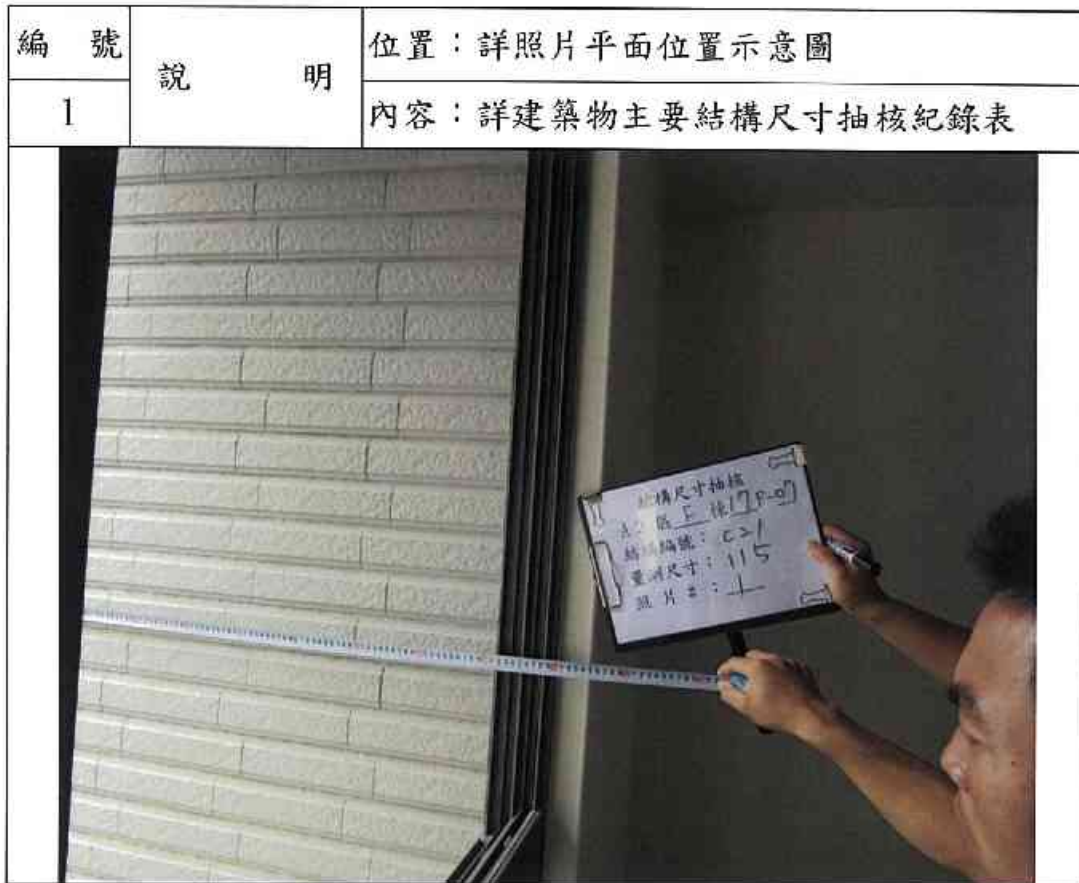 編 號
說 明
位置：詳照片平面位置示意圖
1
內容：詳建築物主要結構尺寸抽核紀錄表
結構尺寸抽核
F 棟 17F-07
結構編號：C21
量測尺寸：115
照片#：1